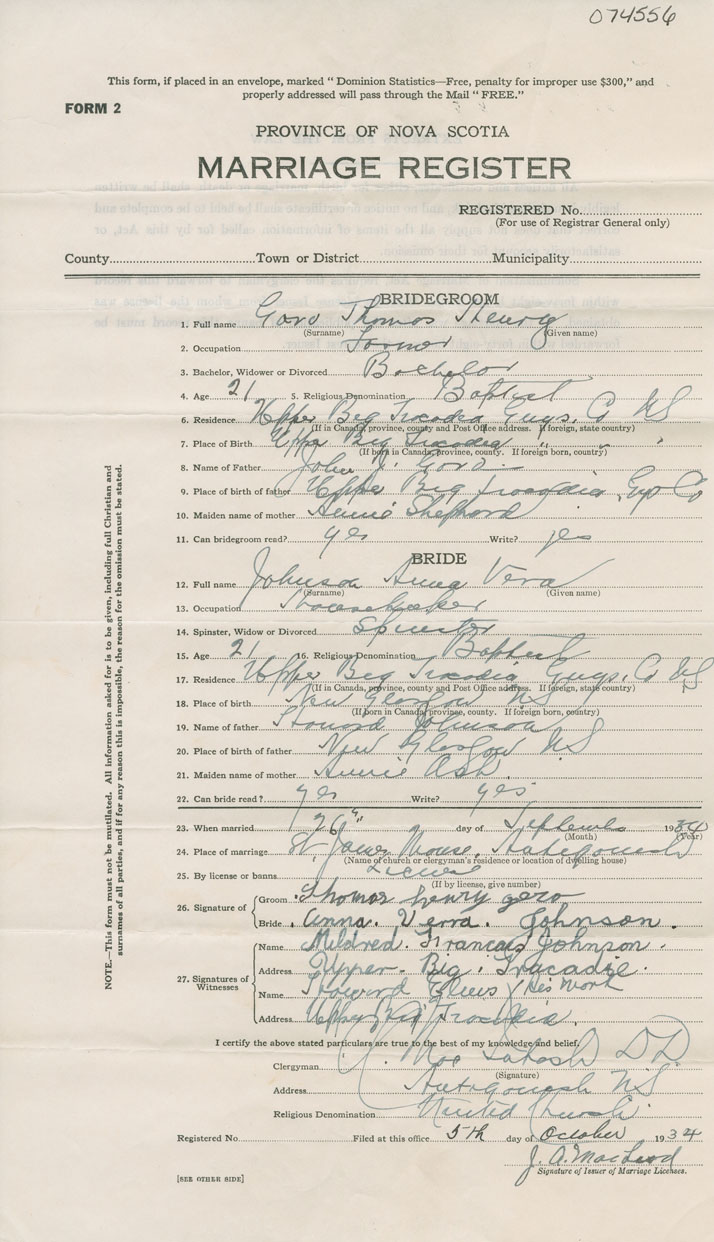 074556
This form, if placed in an envelope, marked " Dominion Statistics—Free, penalty for improper use $300," and
properly addressed will pass through the Mail " FREE."
FORM 2
PROVINCE OF NOVA SCOTIA
MARRIAGE REGISTER
REGISTERED No.
(For use of Registrar General only)
County Town or District Municipality
BRIDEGROOM
1. Full name Gero Thomas Henry
(Surname) (Given name)
2. Occupation Farmer
3. Bachelor, Widower or Divorced Bachelor
4. Age 21 5. Religious Denomination Baptist
6. Residence Upper Big Tracadia Guys. Co NS
(If in Canada, province, county and Post Office address. If foreign, state country)
7. Place of Birth Upper Big Tracadia " "
(If born in Canada, province, county. If foreign born, country)
8. Name of Father John J. Gero
9. Place of birth of father Upper Big Tracadia, Guys Co
10. Maiden name of mother Annie Shepherd
11. Can bridegroom read? yes Write? yes
BRIDE
12. Full name Johnson Anna Vera
(Surname) (Given name)
13. Occupation Housekeeper
14. Spinster, Widow or Divorced Spinster
15. Age 21 16. Religious Denomination Baptist
17. Residence Upper Big Tracadia Guys. Co NS
(If in Canada, province, county and Post Office address. If foreign, state country)
18. Place of birth New Glasgow NS
(If born in Canada, province, county. If foreign born, country)
19. Name of father Howard Johnson
20. Place of birth of father New Glasgow NS
21. Maiden name of mother Annie Ash
22. Can bride read? yes Write? yes
23. When married 26th day of September 1934
(Month) (Year)
24. Place of marriage St James Manse, Antigonish
(Name of church or clergyman's residence or location of dwelling house)
25. By license or banns License
(If by license, give number)
26. Signature of Groom Thomas henry gero
Bride Anna. Verra. Johnson.
27. Signatures of Witnesses Name Mildred. Francais Johnson.
Address Upper. Big. Tracadie.
Name Howard X his Mark
Address Upper Big Tracadia.
I certify the above stated particulars are true to the best of my knowledge and belief.
Clergyman DD
(Signature)
Address Antigonish NS
Religious Denomination United Church
Registered No. Filed at this office 5th day of October 1934
J. A. MacLeod
Signature of Issuer of Marriage Licenses.
[SEE OTHER SIDE]
NOTE.—This form must not be mutilated. All information asked for is to be given, including full Christian and
surnames of all parties, and if for any reason this is impossible, the reason for the omission must be stated.